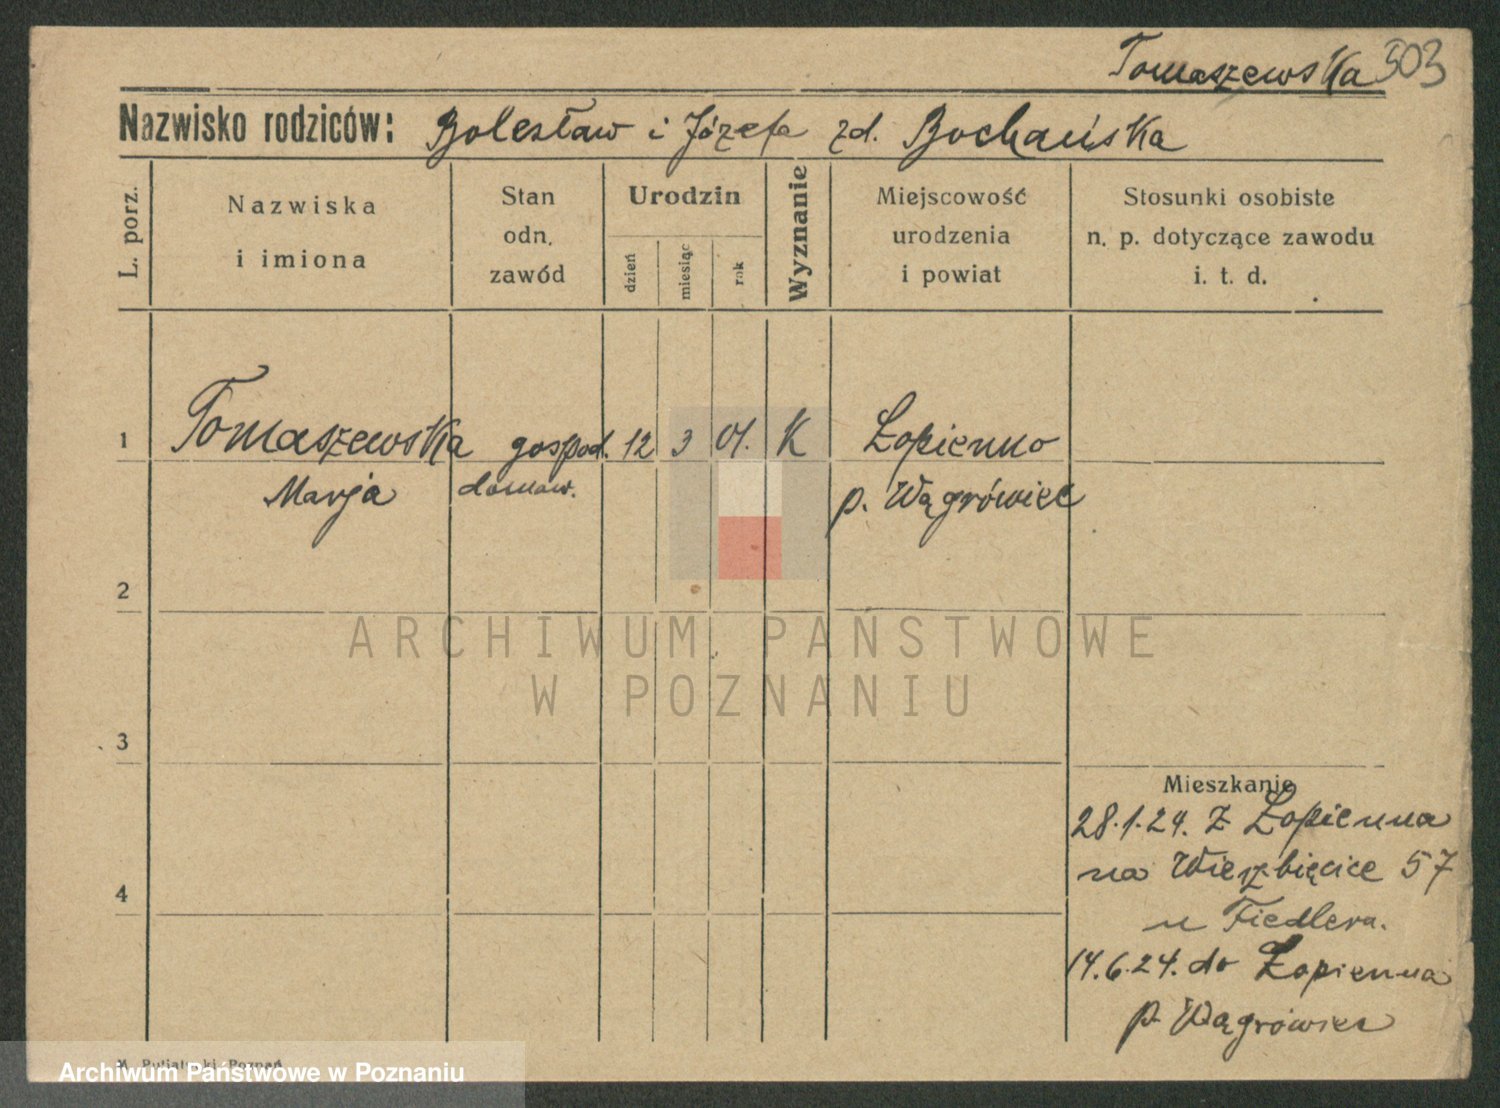 Tomaszewska 503
Nazwisko rodziców: Bolesław i Józefa zd. Bochańska
L. porz.
Nazwiska
i imiona
Stan
odn.
zawód
Urodzin
dzień
miesiąc
rok
Wyznanie
Miejscowość
urodzenia
i powiat
Stosunki osobiste
n. p. dotyczące zawodu
i. t. d.
1 Tomaszewska gospod. 12 3 01. K Łopienno
Marja domow. p. Wągrówiec
2
ARCHIWUM PAŃSTWOWE
W POZNANIU
3
Mieszkanie
28.1.24. z Łopienna
na Wierzbięcice 57
4
u Fiedlera.
14.6.24. do Łopienna
p. Wągrówiec
Poznań
Archiwum Państwowe w Poznaniu